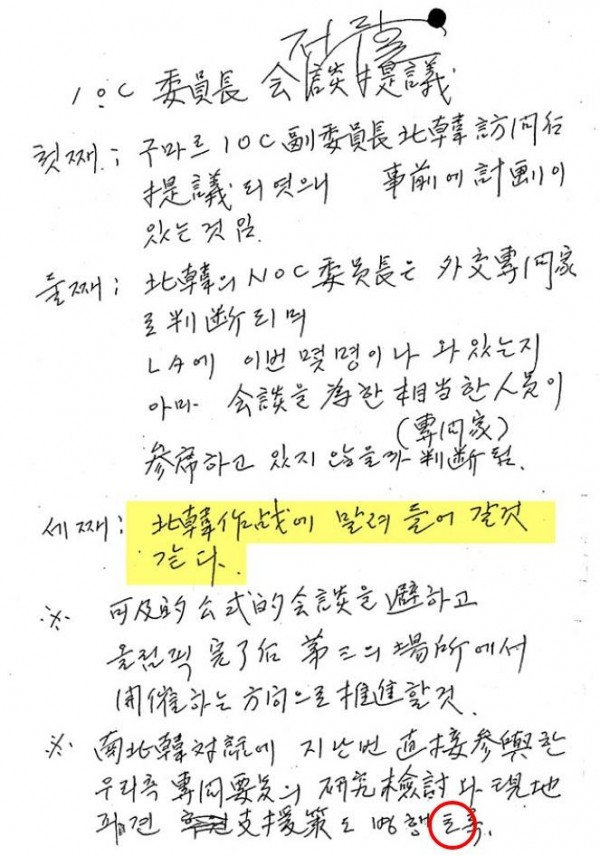 IOC 委員長 会談提議
첫째; 구마르 IOC 副委員長 北韓 訪问后
提議 되엿으니 事前에 計劃이
있는 것임.
둘째; 北韓의 NOC 委員長은 外交專门家
로 判断되며
LA에 이번 몇명이나 와 있는지
아마 会談을 為한 相当한 人員이
(專门家)
參席하고 있지 않을까 判断됨.
세째: 北韓作战에 말려 들어 갈것
같다.
※ 可及的 公式的 会談을 避하고
올림픽 完了后 第三의 場所에서
開催하는 方向으로 推進할것.
※ 南北韓 対話에 지난번 直接參與한
우리측 專门要员의 硏究檢討와 現地
파견 支援策도 병행토록.